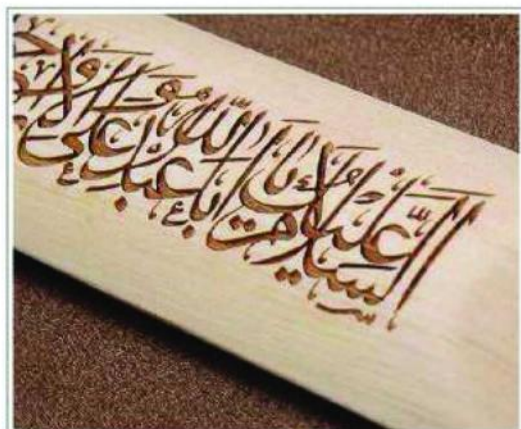 السلام عليك يا أبا عبد الله و على الأرواح